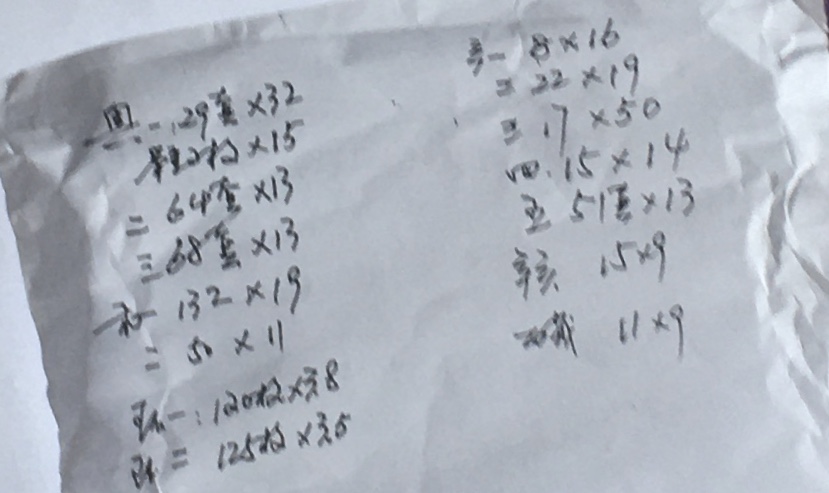 一.29套×32
2枚×15
二 64套×13
三 68套×13
132×19
二 50×11
一:120枚×38
二 125枚×35
一 8×16
二 22×19
三 17×50
四.15×14
五 51套×13
辛亥 15×9
11×9